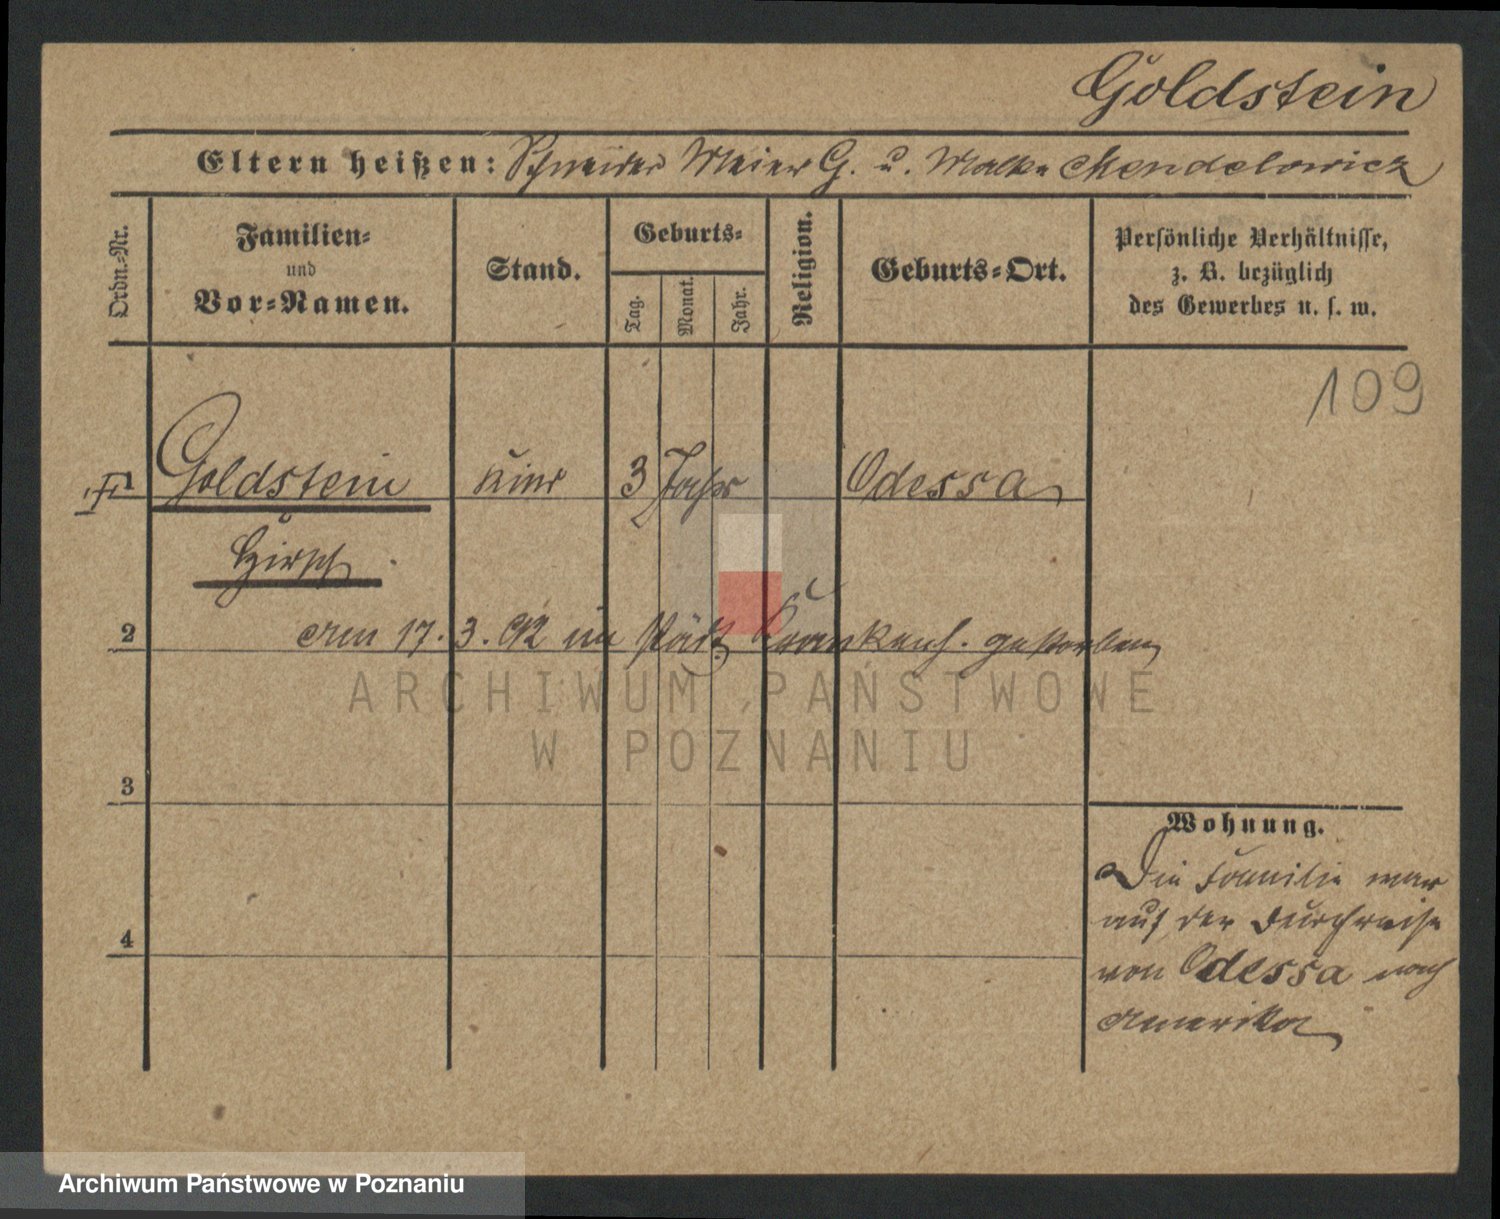 Goldstein
Eltern heißen: Schneider Meier G. u. Malke Mendelowicz
Ordn.-Nr.
Familien-
und
Vor-Namen.
Stand.
Geburts-
Tag.
Monat.
Jahr.
Religion.
Geburts-Ort.
Persönliche Verhältnisse,
z. B. bezüglich
des Gewerbes u. s. w.
109
1 Goldstein Kind 3 Jahr Odessa
Hirsch
2 Am 17.3.92 im städt. Krankenh. gestorben
ARCHIWUM PAŃSTWOWE
W POZNANIU
3
Wohnung.
Die Familie war
auf der Durchreise
von Odessa nach
Amerika
4
Archiwum Państwowe w Poznaniu